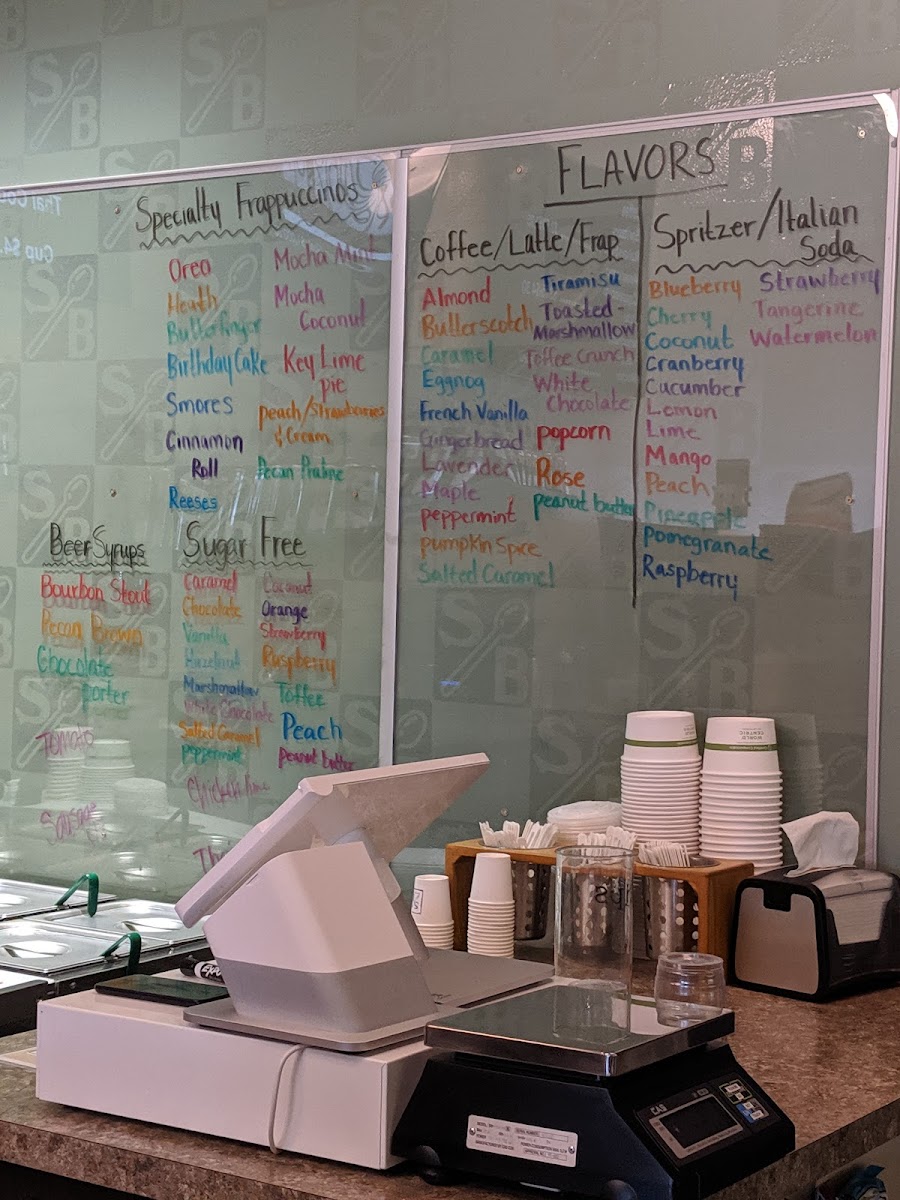 Specialty Frappuccinos
Oreo
Heath
Butterfinger
Birthday Cake
Smores
Cinnamon
Roll
Reeses
Mocha Mint
Mocha
Coconut
Key Lime
pie
peach/Strawberries
& Cream
Pecan Praline
Beer Syrups
Bourbon Stout
Pecan Brown
Chocolate
porter
Tomato
Sugar Free
Caramel
Chocolate
Vanilla
Hazelnut
Marshmallow
White Chocolate
Salted Caramel
peppermint
Coconut
Orange
Strawberry
Raspberry
Toffee
Peach
Peanut butter
FLAVORS
Coffee/Latte/Frap
Almond
Butterscotch
Caramel
Eggnog
French Vanilla
Gingerbread
Lavender
Maple
peppermint
pumpkin Spice
Salted Caramel
Tiramisu
Toasted-
Marshmallow
Toffee Crunch
White
Chocolate
popcorn
Rose
peanut butter
Spritzer/Italian
Soda
Blueberry
Cherry
Coconut
Cranberry
Cucumber
Lemon
Lime
Mango
Peach
Pineapple
Pomegranate
Raspberry
Strawberry
Tangerine
Watermelon
SB
CAS